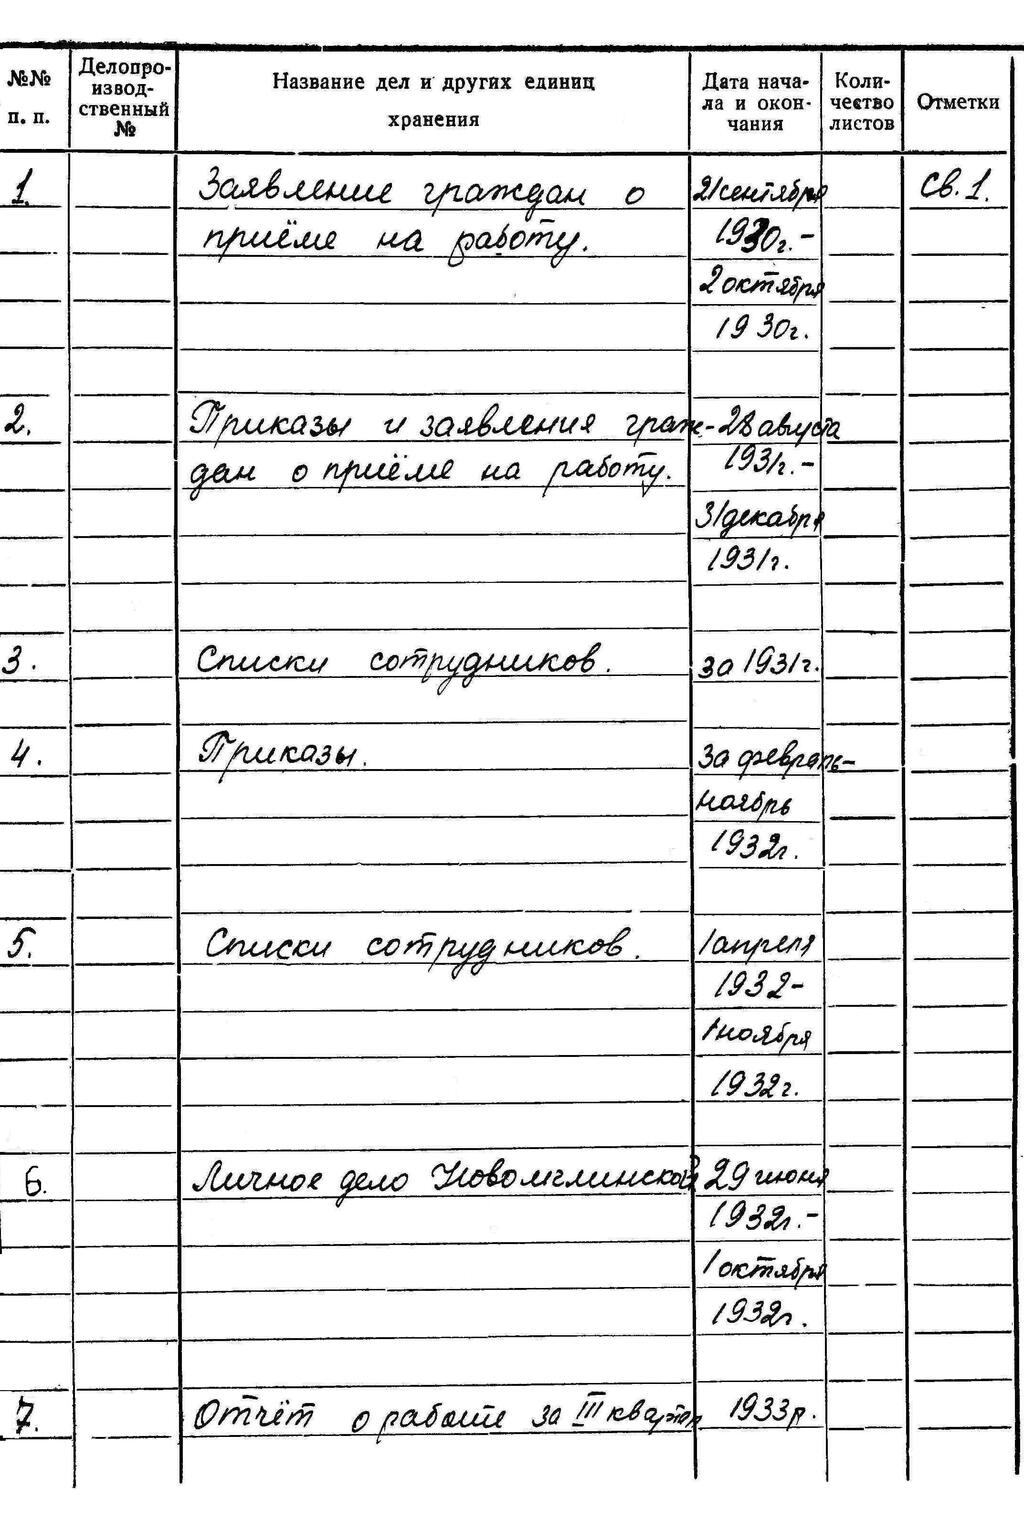 №№ п. п.
Делопро-
извод-
ственный
№
Название дел и других единиц
хранения
Дата нача-
ла и окон-
чания
Коли-
чество
листов
Отметки
1. Заявление граждан о 21 сентября св. 1.
приёме на работу. 1930г.-
2 октября
1930г.
2. Приказы и заявления граж- 28 августа
дан о приёме на работу. 1931г.-
31 декабря
1931г.
3. Списки сотрудников. за 1931г.
4. Приказы. за февраль-
ноябрь
1932г.
5. Списки сотрудников. 1 апреля
1932-
1 ноября
1932г.
6. Личное дело Новомглинской 29 июня
1932г.-
1 октября
1932г.
7. Отчёт о работе за III квартал 1933г.